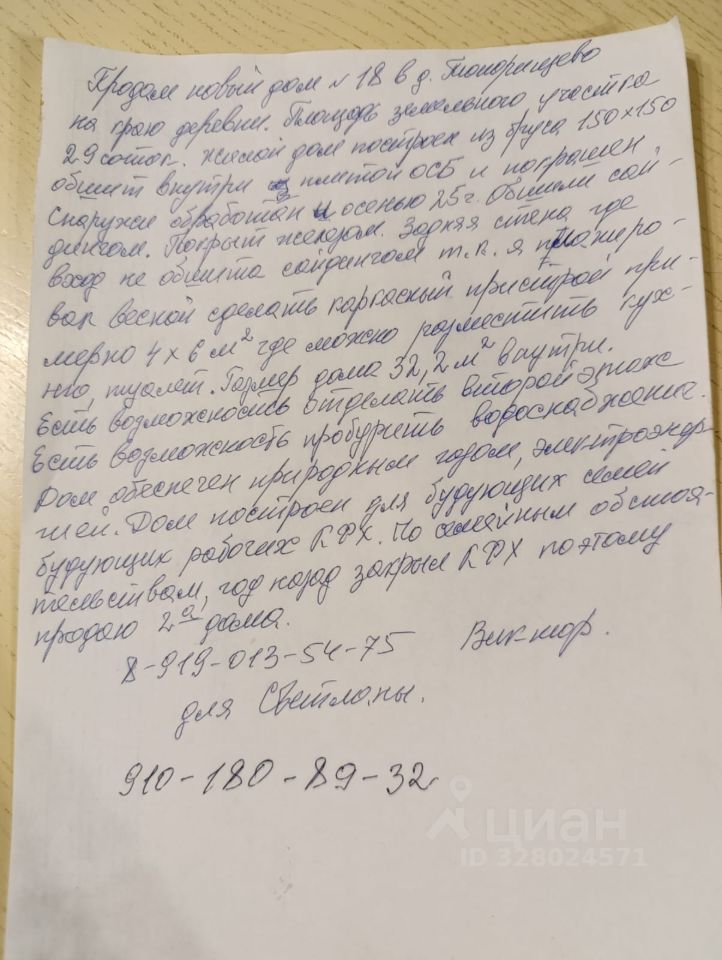 Продам новый дом №18 в д. Топорищево
на краю деревни. Площадь земельного участка
29 соток. Жилой дом построен из бруса 150х150
обшит внутри плитой ОСБ и покрашен
Снаружи обработан и осенью 25г. Обшили сай-
дингом. Покрыт железом. Задняя стена, где
вход не обшита сайдингом т.к. я планиро-
вал весной сделать каркасный пристрой при-
мерно 4х6 м² где можно разместить кух-
ню, туалет. Размер дома 32,2 м² внутри.
Есть возможность отделать второй этаж
Есть возможность пробурить водоснабжены.
Дом обеспечен природным газом, электроэнер-
гией. Дом построен для будующих семей
будующих рабочих КФХ. По семейным обстоя-
тельствам, год назад закрыл КФХ поэтому
продаю 2а дома.
8-919-013-54-75 Виктор.
для Светланы.
910-180-89-32
циан
ID 328024571